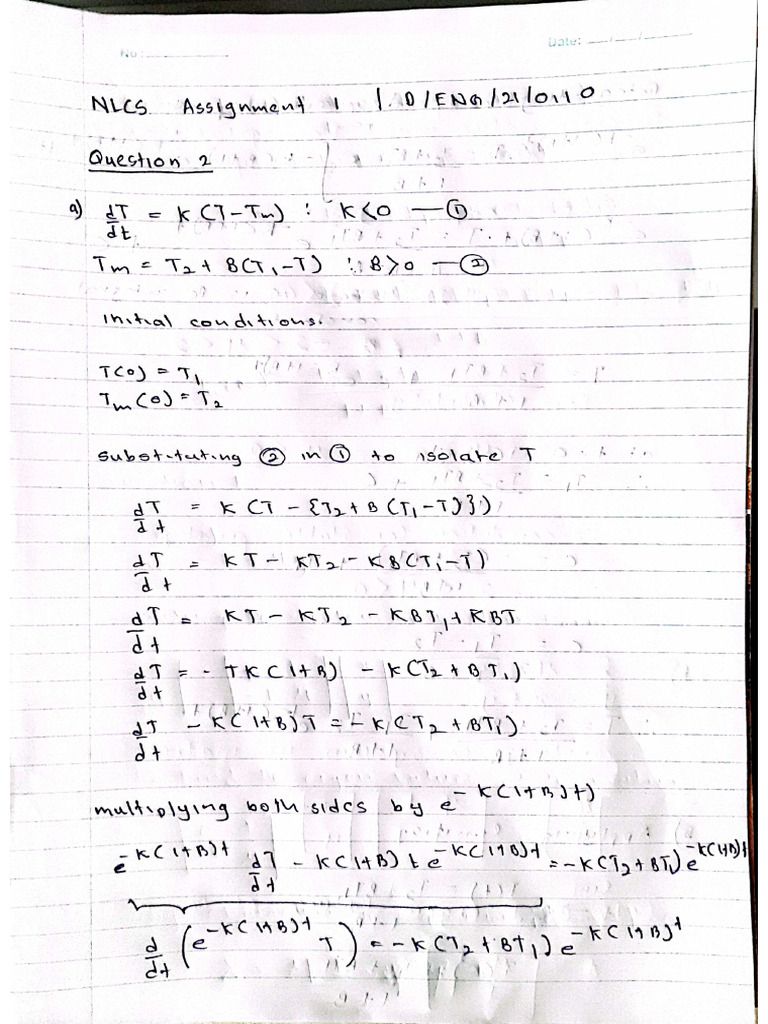 No:
Date:
NLCS Assignment 1 | D/ENG/21/0110
Question 2
a) dT/dt = K (T-Tm) : K<0 — ①
Tm = T2 + B(T1-T) : B>0 — ②
initial conditions.
T(0) = T1
Tm(0) = T2
substituting ② in ① to isolate T
dT/dt = K (T - {T2 + B (T1-T)})
dT/dt = KT - KT2 - KB(T1-T)
dT/dt = KT - KT2 - KBT1 + KBT
dT/dt = - TK(1+B) - K(T2 + BT1)
dT/dt - K(1+B)T = - K(T2 + BT1)
multiplying both sides by e^-K(1+B)t)
e^-K(1+B)t dT/dt - K(1+B) t e^-K(1+B)t = -K(T2 + BT1) e^-K(1+B)t
d/dt (e^-K(1+B)t T) = -K(T2 + BT1) e^-K(1+B)t